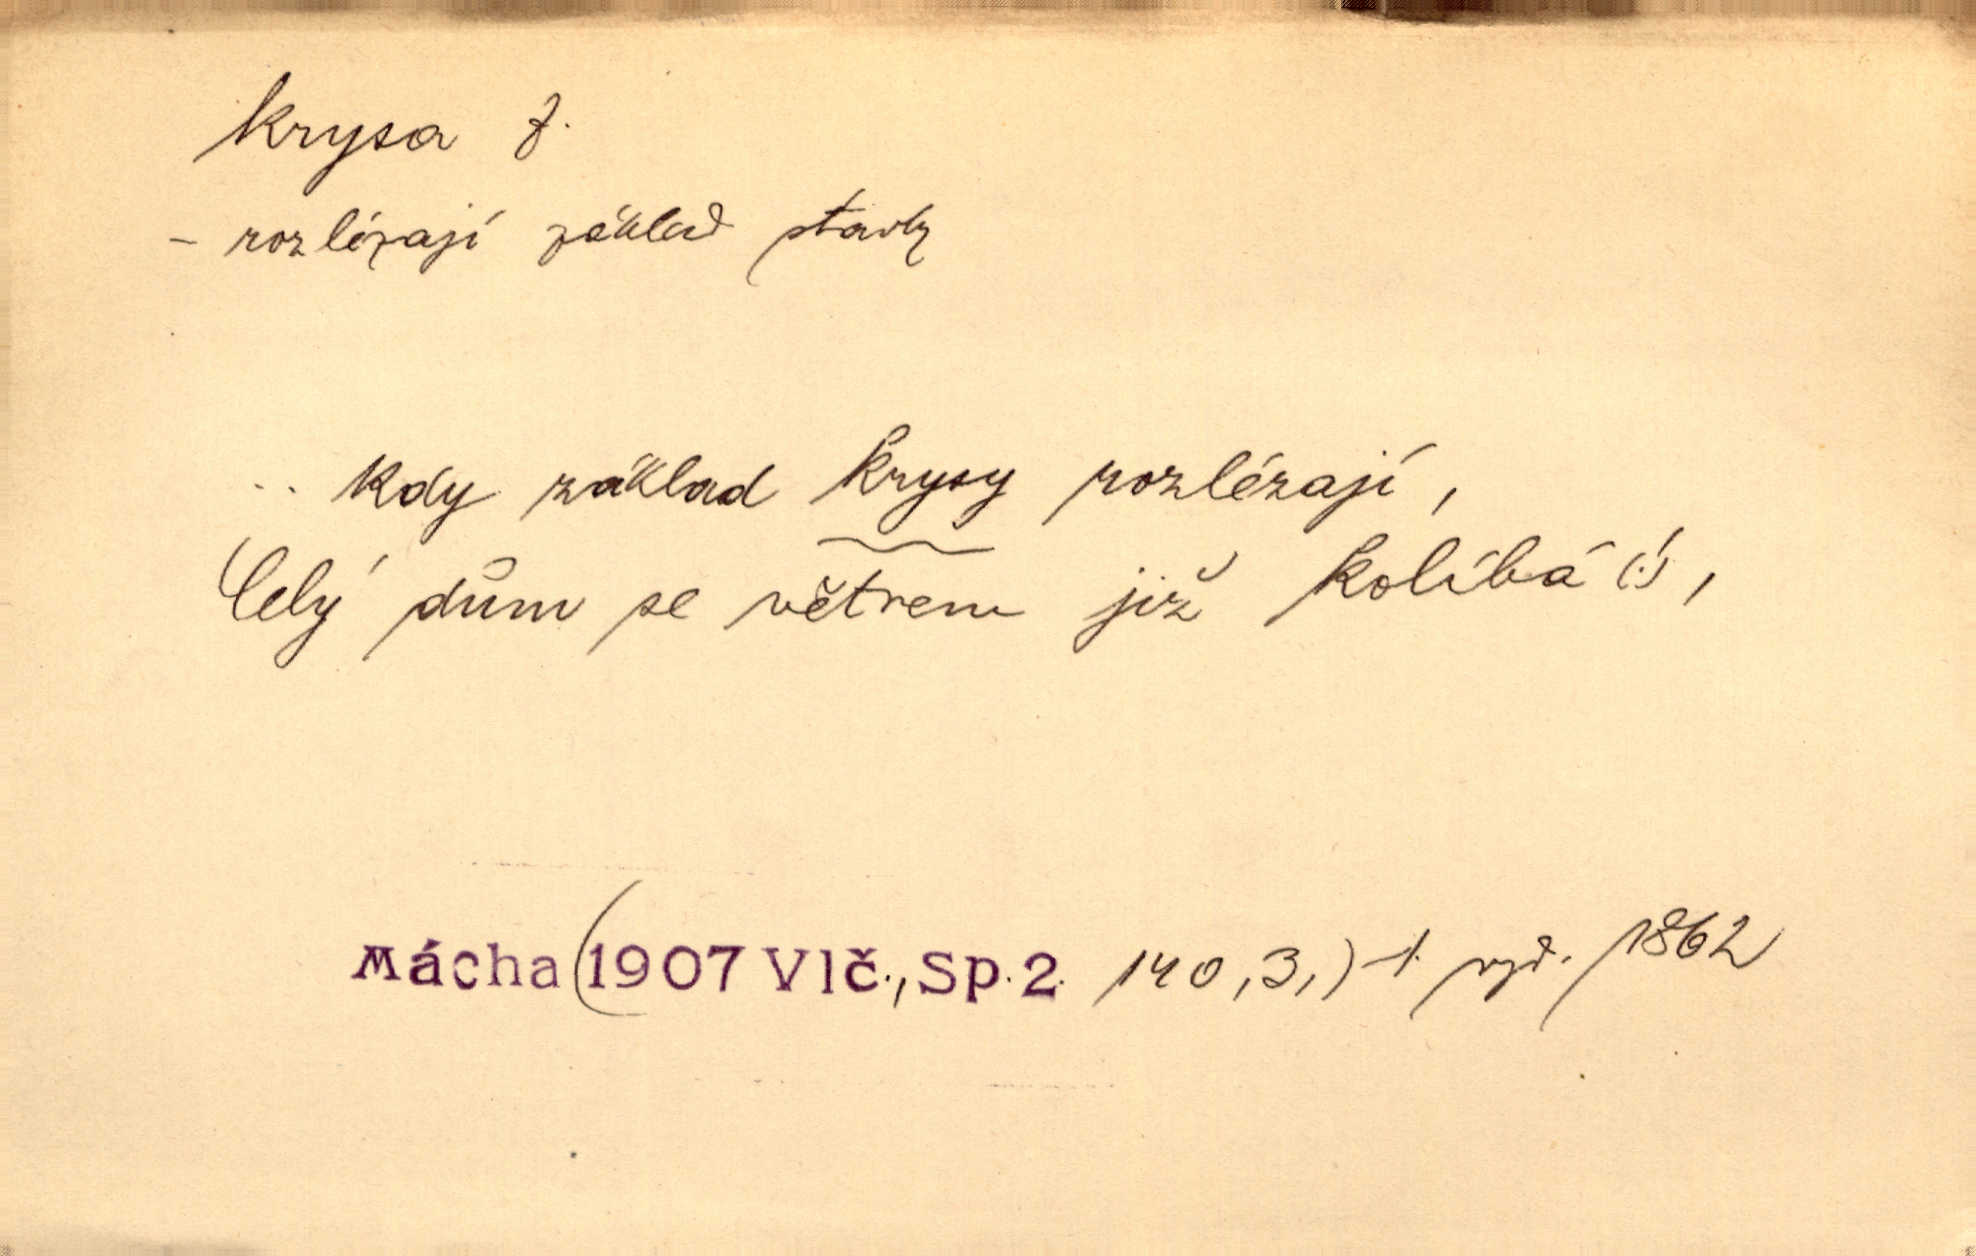 krysa f.
- rozlézají základ stavby
.. Kdy základ krysy rozlézají,
Celý dům se větrem již kolíbá (!),
Mácha (1907 Vlč., Sp. 2. 140,3,) 1. vyd. 1862